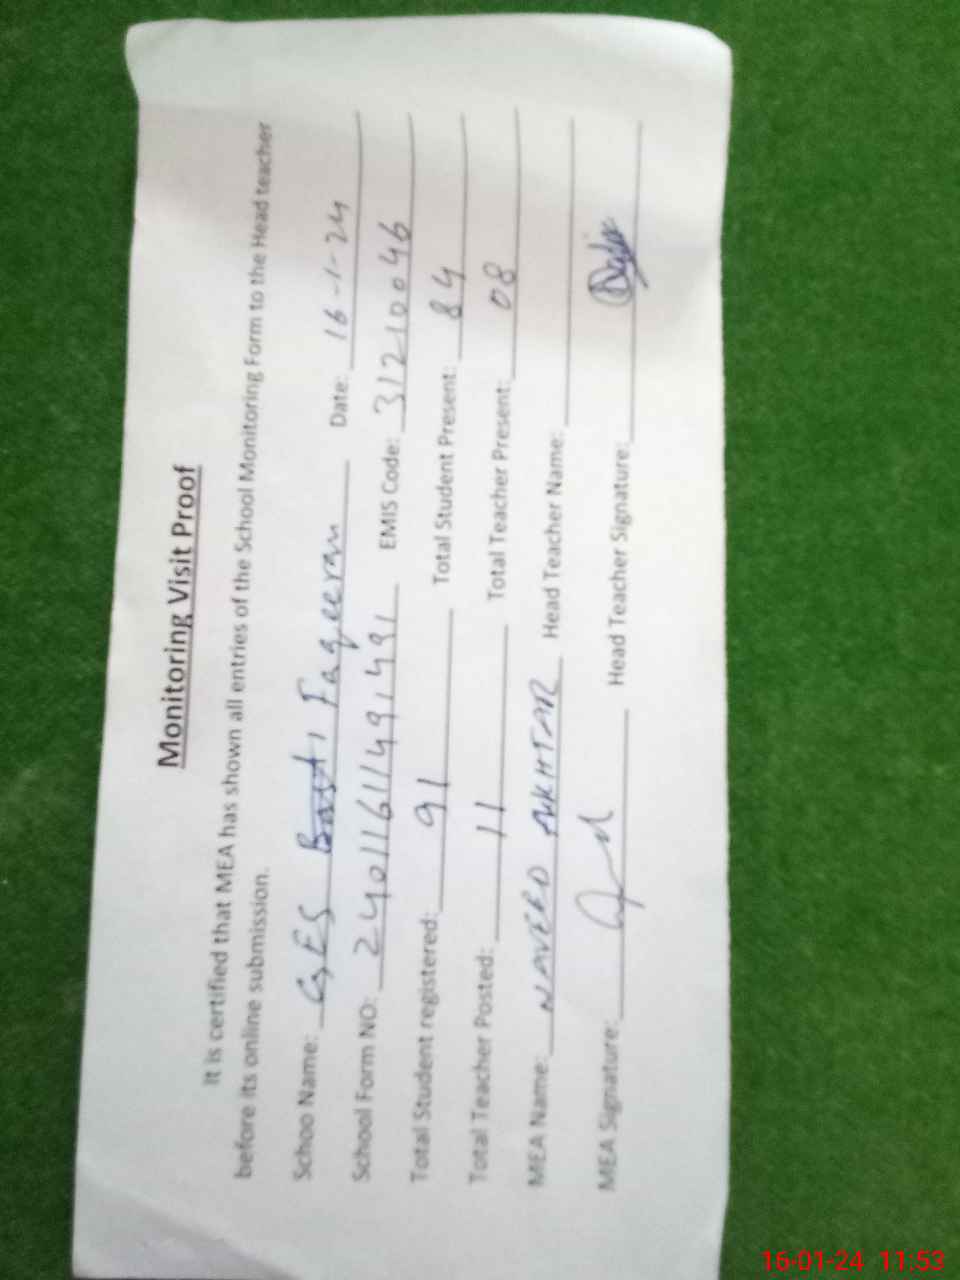 Monitoring Visit Proof
It is certified that MEA has shown all entries of the School Monitoring Form to the Head teacher
before its online submission.
Schoo Name: GES Basti Faqeeran Date: 16-1-24
School Form NO: 24011611491491 EMIS Code: 31210046
Total Student registered: 91 Total Student Present: 84
Total Teacher Posted: 11 Total Teacher Present: 08
MEA Name: NAVEED AKHTAR Head Teacher Name:
MEA Signature: Head Teacher Signature:
16-01-24 11:53